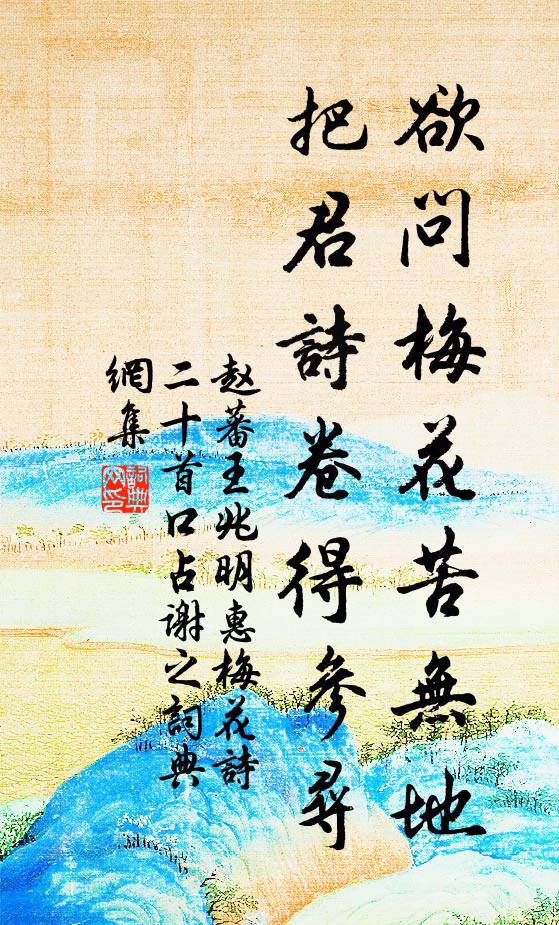 欲問梅花苦無地
把君詩卷得參尋
赵蕃王兆明惠梅花詩
二十首口占谢之詞典
網集
詞典